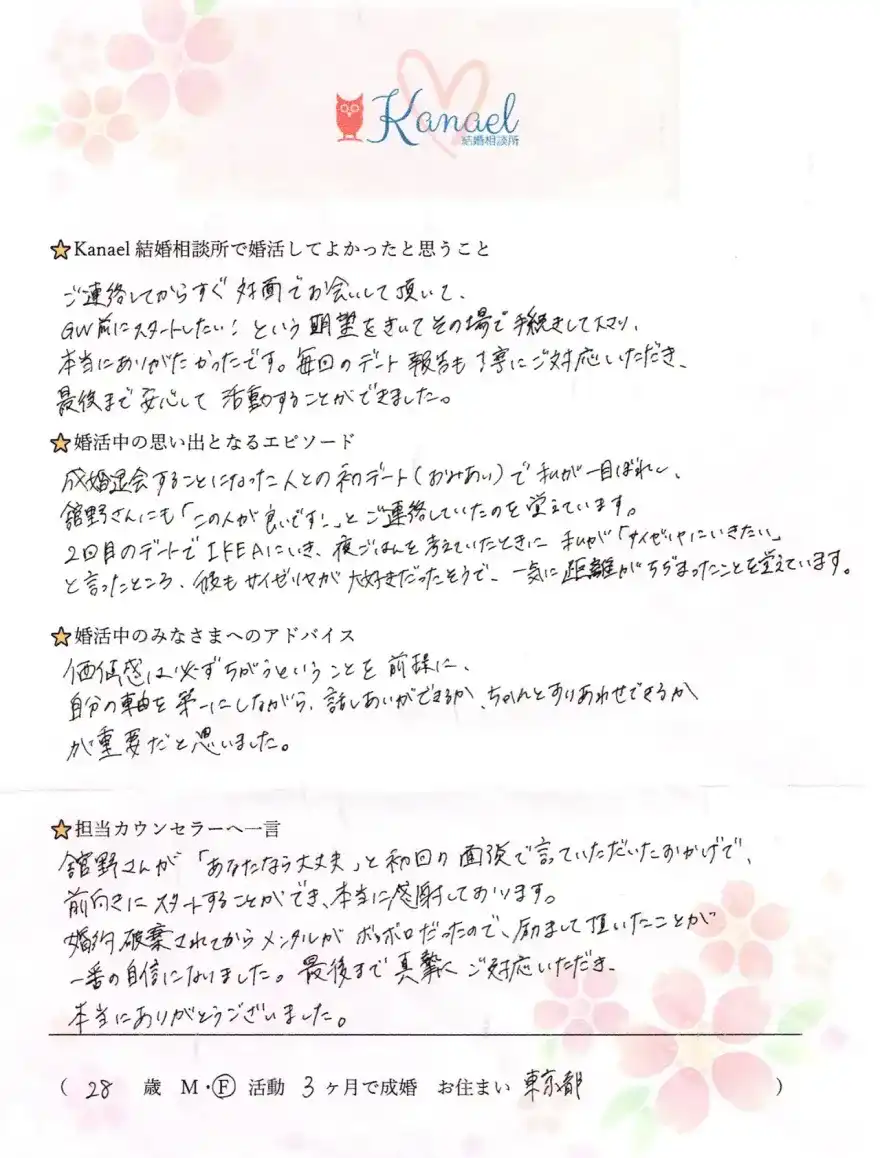 Kanael
結婚相談所
★Kanael 結婚相談所で婚活してよかったと思うこと
ご連絡してからすぐ対面でお会いして頂いて、
GW前にスタートしたい!という期望をきいてその場で手続きして下さり、
本当にありがたかったです。毎回のデート報告も丁寧にご対応いただき、
最後まで安心して活動することができました。
★婚活中の思い出となるエピソード
成婚退会することになった人との初デート(おみあい)で私が一目ぼれし、
舘野さんにも「この人が良いです!」とご連絡していたのを覚えています。
2回目のデートでIKEAにいき、夜ごはんを考えていたときに私が「サイゼリヤにいきたい」
と言ったところ、彼もサイゼリヤが大好きだったそうで、一気に距離がちぢまったことを覚えています。
★婚活中のみなさまへのアドバイス
価値感は必ずちがうということを前提に、
自分の軸を第一にしながら、話しあいができるか、ちゃんとすりあわせできるか
が重要だと思いました。
★担当カウンセラーへ一言
舘野さんが「あなたなら大丈夫」と初回の面談で言っていただいたおかげで、
前向きにスタートすることができ、本当に感謝しております。
婚約破棄されてからメンタルがボロボロだったので、励まして頂いたことが
一番の自信になりました。最後まで真摯にご対応いただき、
本当にありがとうございました。
( 28 歳 M・Ⓕ 活動 3 ヶ月で成婚 お住まい 東京都 )